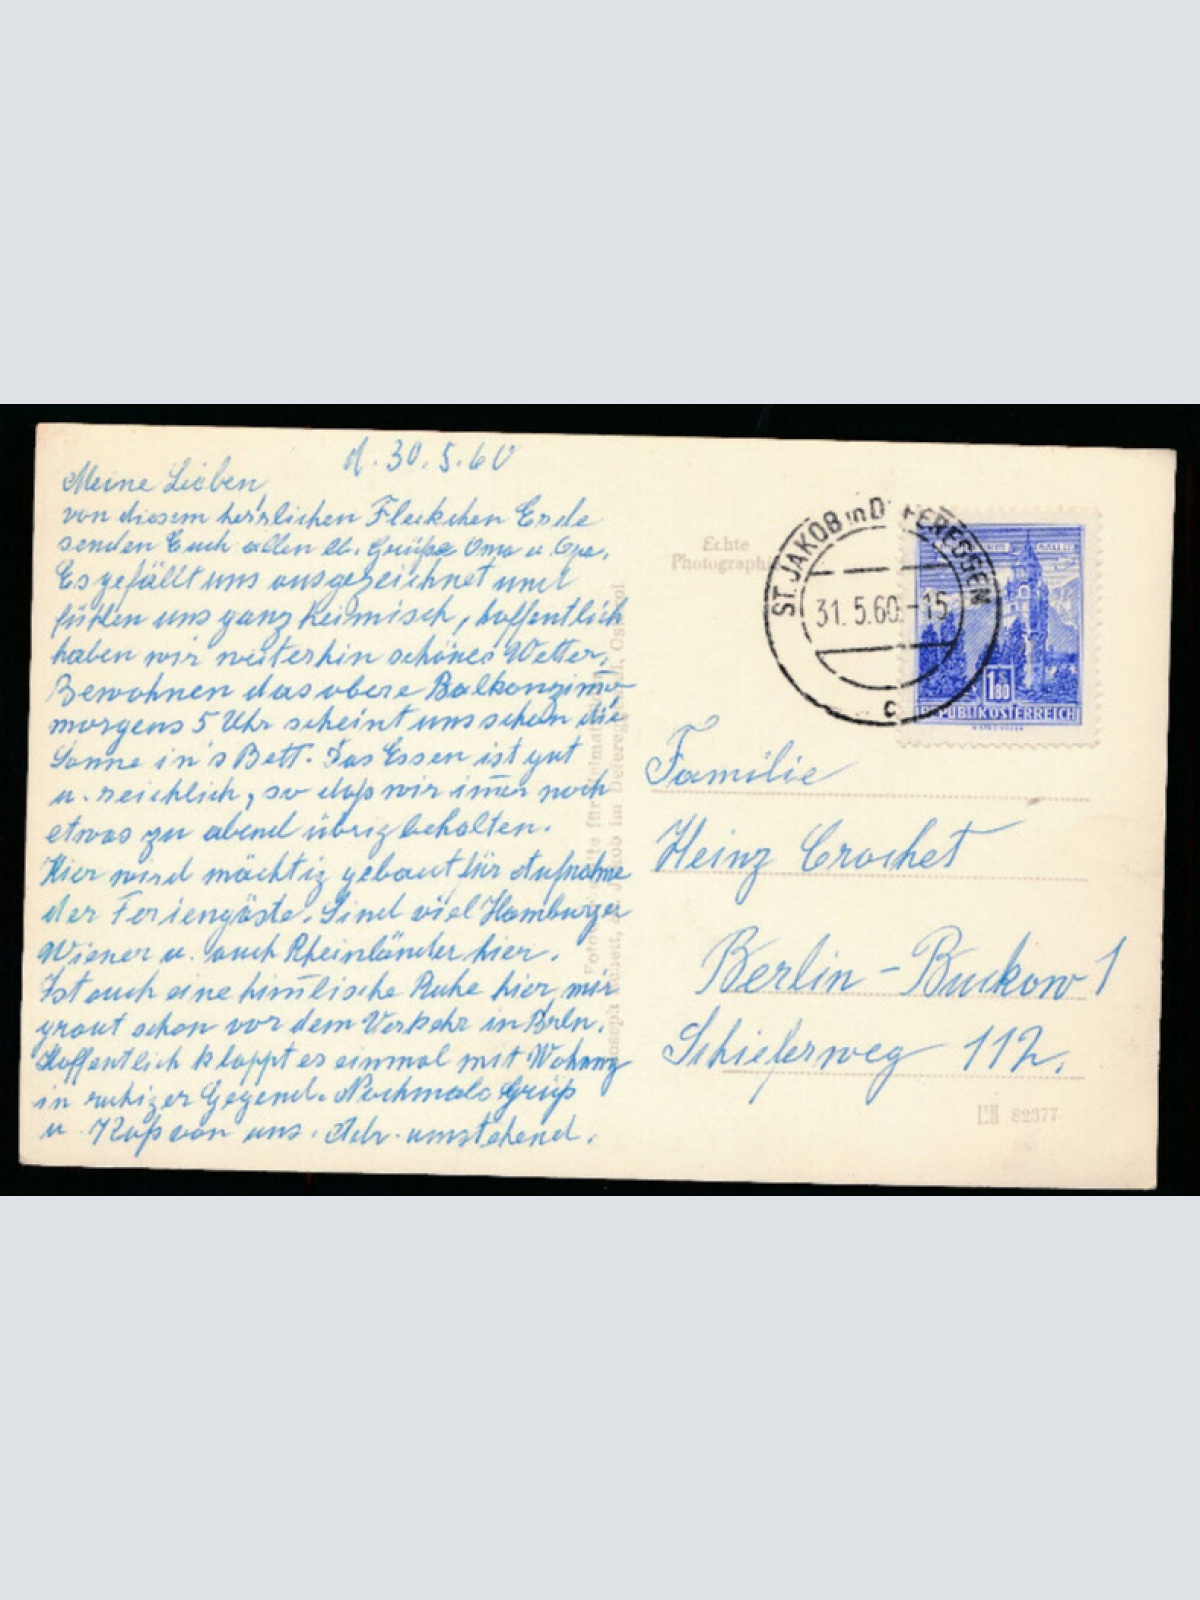 d. 30.5.60
Meine Lieben
von diesem herrlichen Fleckchen Erde
senden Euch allen lb. Grüße Oma u. Opa.
Es gefällt uns ausgezeichnet und
fühlen uns ganz heimisch, hoffentlich
haben wir weiterhin schönes Wetter.
Bewohnen das obere Balkonzim̅
morgens 5 Uhr scheint uns schon die
Sonne in's Bett. Das Essen ist gut
u. reichlich, so daß wir im̅er noch
etwas zu abend übrig behalten.
Hier wird mächtig gebaut für Aufnahme
der Feriengäste. Sind viel Hamburger
Wiener u. auch Rheinländer hier.
Ist auch eine him̅lische Ruhe hier, mir
graut schon vor dem Verkehr in Brln.
Hoffentlich klappt es einmal mit Wohnung
in ruhiger Gegend. Nochmals Grüß
u. Kuß von uns. Adr. umstehend.
Echte
Photographie
ST. JAKOB in DEFEREGGEN
31. 5.60.-15
c
1.80
REPUBLIK ÖSTERREICH
Familie
Heinz Crochet
Berlin-Buckow 1
Schieferweg 112.
82377
Jakob im Defereggental, Osttirol